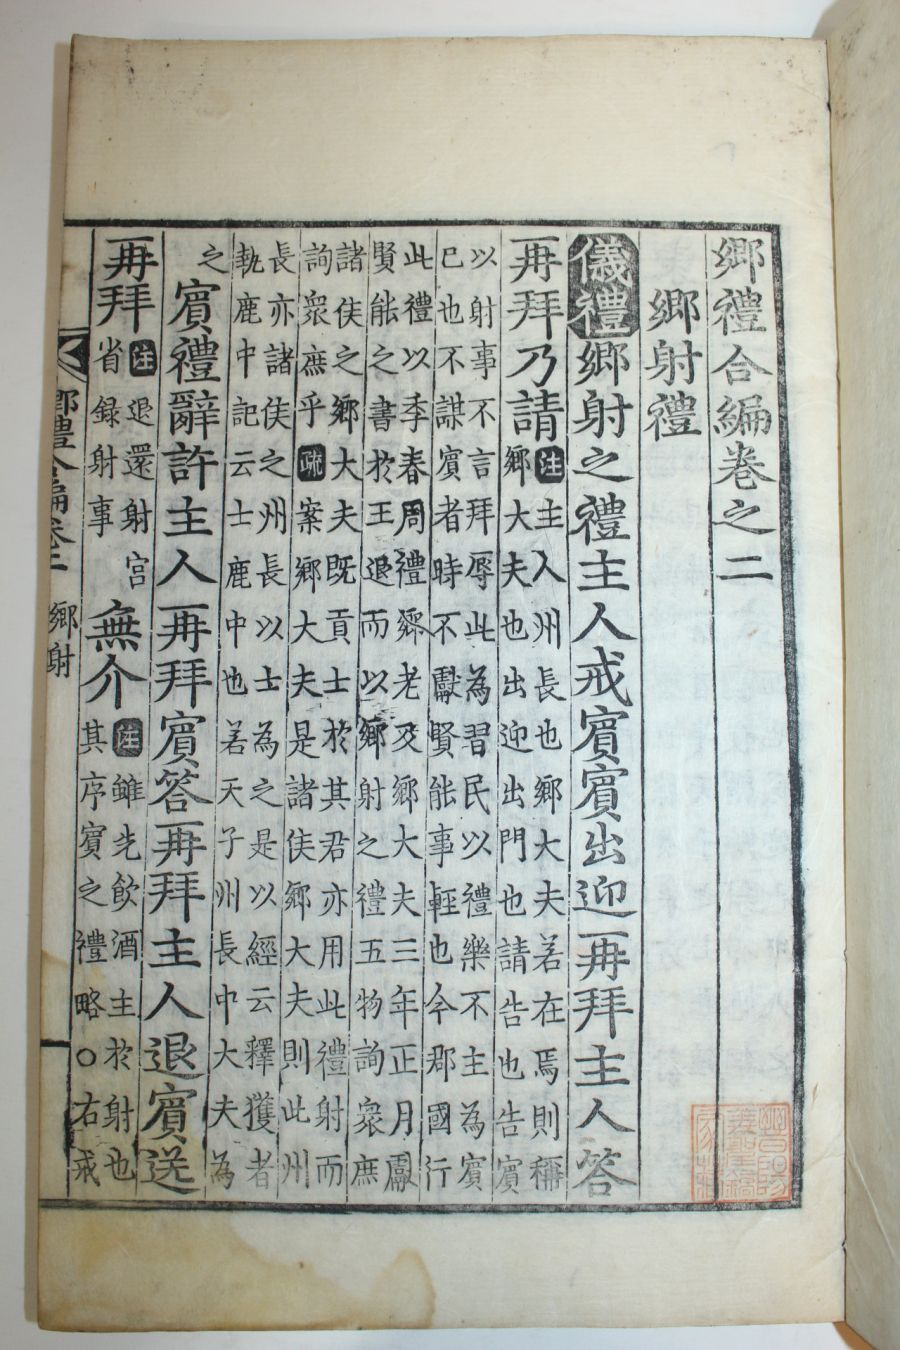 鄉禮合編卷之二
鄉射禮
儀禮鄉射之禮主人戒賓賓出迎再拜主人答
再拜乃請
注主人州長也鄉大夫若在焉則稱
鄉大夫也出迎出門也請告也告賓
以射事不言拜辱此為習民以禮樂不主為賓
已也不謀賓者時不獻賢能事輕也今郡國行
此禮以季春周禮鄉老及鄉大夫三年正月獻
賢能之書於王退而以鄉射之禮五物詢衆庶
諸侯之鄉大夫既貢士於其君亦用此禮射而
詢衆庶乎疏案鄉大夫是諸侯鄉大夫則此州
長亦諸侯之州長以士為之是以經云釋獲者
執鹿中記云士鹿中也若天子州長中大夫為
之
賓禮辭許主人再拜賓答再拜主人退賓送
再拜
注退還射宮
省録射事
無介
注雖先飲酒主於射也
其序賓之禮略○右戒
鄉禮合編卷二 鄉射